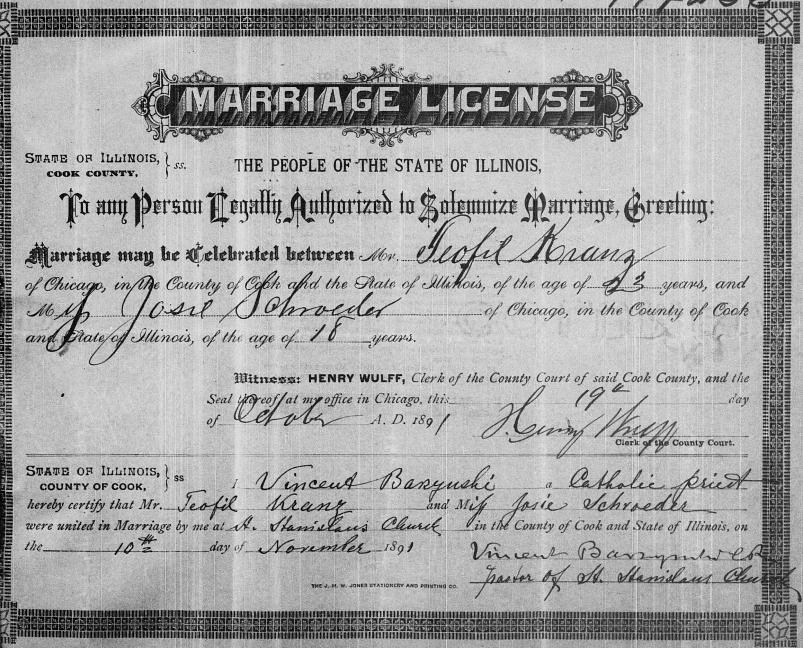 MARRIAGE LICENSE
STATE OF ILLINOIS,
COOK COUNTY, } ss.
THE PEOPLE OF THE STATE OF ILLINOIS,
To any Person Legally Authorized to Solemnize Marriage, Greeting:
Marriage may be Celebrated between Mr. Teofil Kranz
of Chicago, in the County of Cook and the State of Illinois, of the age of 23 years, and
Miss Josie Schroeder of Chicago, in the County of Cook
and State of Illinois, of the age of 18 years.
Witness: HENRY WULFF, Clerk of the County Court of said Cook County, and the
Seal thereof at my office in Chicago, this 19th day
of October A. D. 1891
Henry Wulff
Clerk of the County Court.
STATE OF ILLINOIS,
COUNTY OF COOK, } ss
I Vincent Barzynski a Catholic priest
hereby certify that Mr. Teofil Kranz and Miss Josie Schroeder
were united in Marriage by me at St. Stanislaus Church in the County of Cook and State of Illinois, on
the 10th day of November 1891
Vincent Barzynski C.R.
pastor of St. Stanislaus Church
THE J. M. W. JONES STATIONERY AND PRINTING CO.